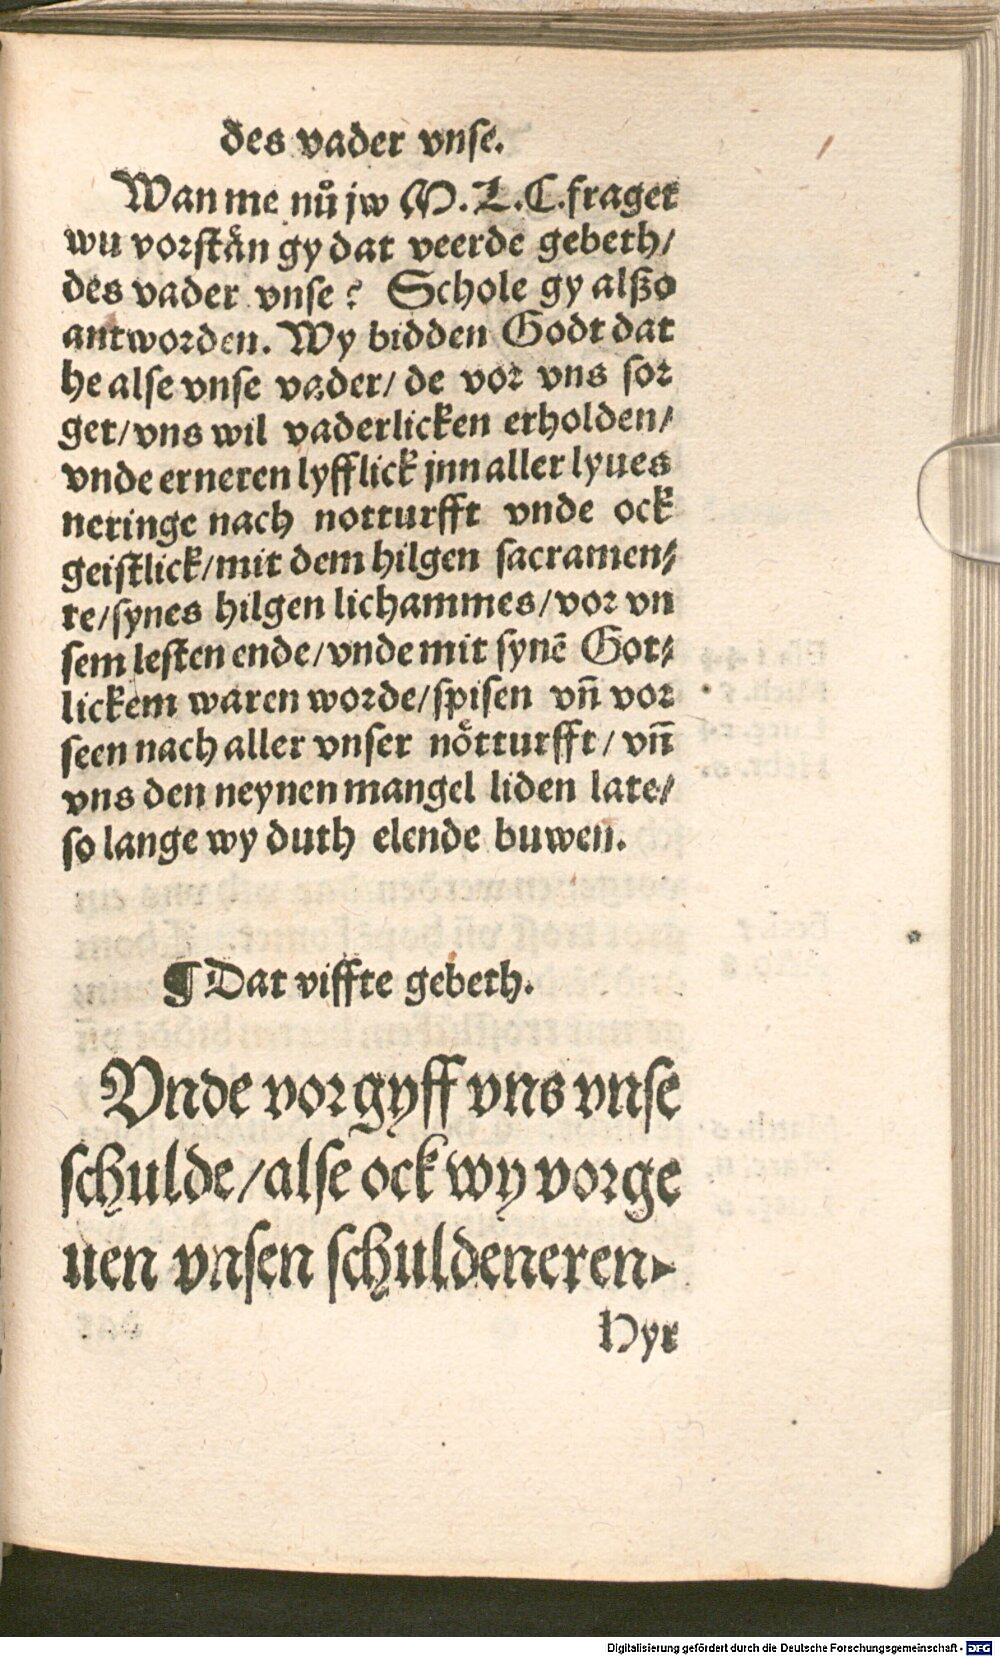 des vader vnse.
Wan me nů jw M. L. C. fraget
wu vorstån gy dat veerde gebeth/
des vader vnse? Schole gy alßo
antworden. Wy bidden Godt dat
he alse vnse vader/ de vor vns sor
get/ vns wil vaderlicken erholden/
vnde erneren lyfflick jnn aller lyues
neringe nach notturfft vnde ock
geistlick/ mit dem hilgen sacramen⸗
te/ synes hilgen lichammes/ vor vn
sem lesten ende/ vnde mit synē Got⸗
lickem waren worde/ spisen vñ vor
seen nach aller vnser nötturfft/ vñ
vns den neynen mangel liden late/
so lange wy duth elende buwen.
¶ Dat viffte gebeth.
Vnde vorgyff vns vnse
schulde/ alse ock wy vorge
uen vnsen schuldeneren.
Hyr
Digitalisierung gefördert durch die Deutsche Forschungsgemeinschaft - DFG